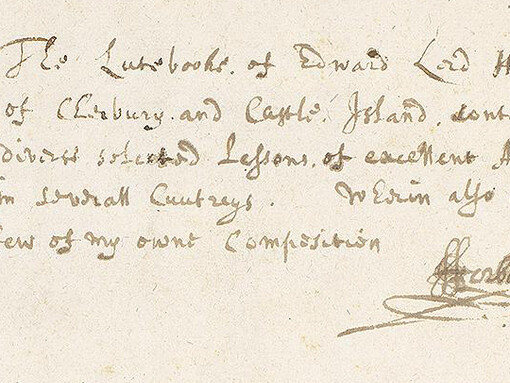 The Lutebooke. of Edward Lord H
of Cherbury. and Castle. Island. cont
diverse selected Lessons. of excellent A
in severall Cuntreys. Wherin also
few of my owne Composition
Herbe